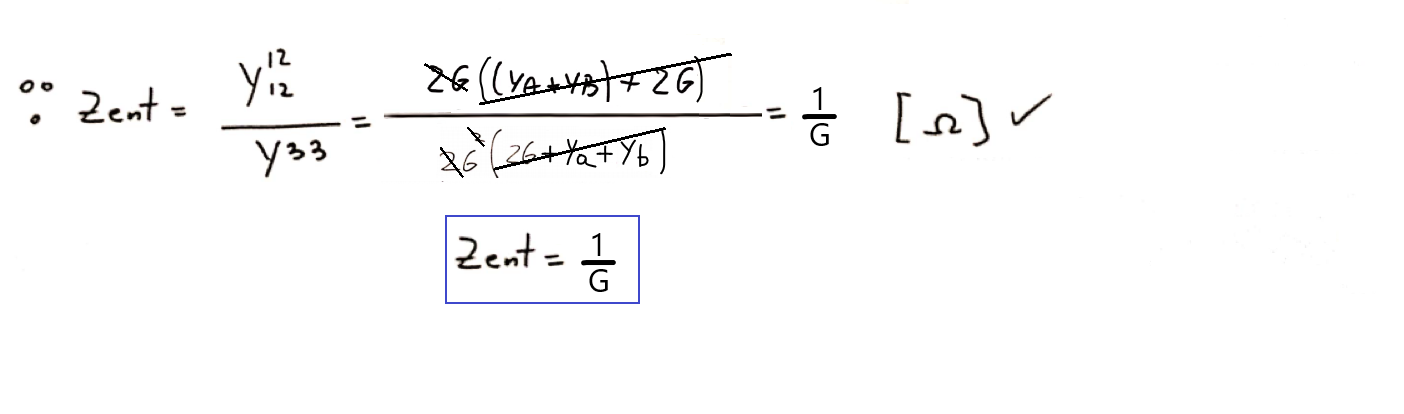 ∵ Zent = Y¹²₁₂ / Y33 = 2G((YA+YB)+2G) / 2G²(2G+Ya+Yb) = 1/G [Ω] ✓
Zent = 1/G